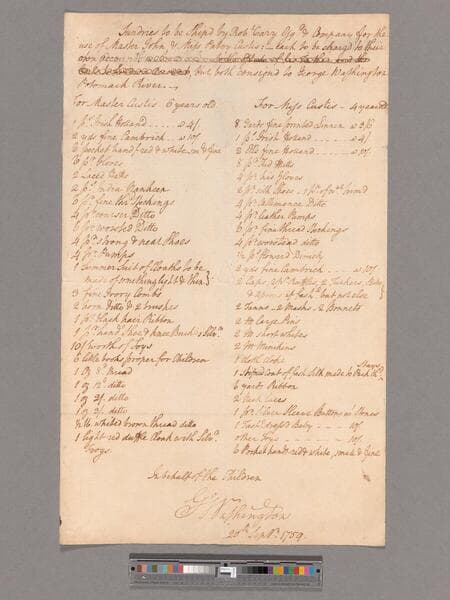 Sundries to be Ship'd by Rob^t Cary Esq^r & Company for the
use of Master John & Miss Patsy Custis – each to be charg'd to their
own accounts
but both consign'd to George Washington
Potomack River.
For Master Custis 6 years old
1 p^s Irish Holland @ 4/.
2 yds fine Cambrick @ 10/.
6 pocket handk^fs red & white, sm & fine
6 p^r Gloves
2 Laced Hatts
2 p^s India Nankeen
6 p^r fine thr^d Stockings
4 p^r coarser Ditto
6 p^r worsted Ditto
4 p^r strong & neat Shoes
4 p^r Pumps
1 Summer Suit of Cloaths to be
made of something light & thin
3 fine Ivory Combs
2 horn Ditto & 2 brushes
1 p^s black hair Ribbon
1 p^r hands^e Shoe & knee Buck^s
10/ worth of Toys
6 little books proper for Children
1 oz 8^d thread
1 oz 12^d ditto
1 oz 2/. ditto
1 oz 3/. ditto
whited brown thread ditto
1 light red duffle Cloak with Silv^r
Frogs
For Miss Custis – 4 years old
8 Yards fine printed Linnen @ 3/6
1 p^s Irish Holland @ 4/
2 Ells fine Holland @ 10/.
8 p^r Kid Mitts
4 p^r Gloves
2 p^r silk Shoes
4 p^r Callemanco Ditto
4 p^r leather Pumps
6 p^r fine thread Stockings
4 p^r worsted ditto
½ p^s flower'd Dimity
2 yds fine Cambrick @ 10/
2 Caps, 2 p^r Ruffles, 2 Tuckers, Bibs
& aprons if fash but not else
2 Fanns – 2 Masks – 2 Bonnets
2 M large Pins
2 M short whites
2 M Minikens
1 Cloth Cloke
1 Stiffned Coat of fash Silk made to Pack thr^d
Stays
6 yards Ribbon
2 Neck laces
1 p^r Silver Sleeve Buttons w Stones
1 Fash^e dress'd Baby 10/.
other Toys 10/
6 Pocket handk^fs red & white, small & fine
In behalf of the Children
G^o Washington
20^th Sep^br 1759.